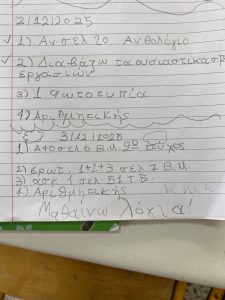 2/12/2025
✓ 1) Αν σελ 20 Ανθολόγιο
✓ 2) Διαβάζω τα ουσιαστικα σε
εργασιών
3) 1 Φωτοτυπία
4) Αριθμητικής
3/12/2025
1) Α+Ο σελ 6 Β.Μ. 2º τεύχος
2) ερωτ. 1+2+3 σελ 7 Β.Μ.
3) ασκ 1 σελ. 51 Τ.Ε.
4) Αριθμητικής
Μαθαίνω λόγια!